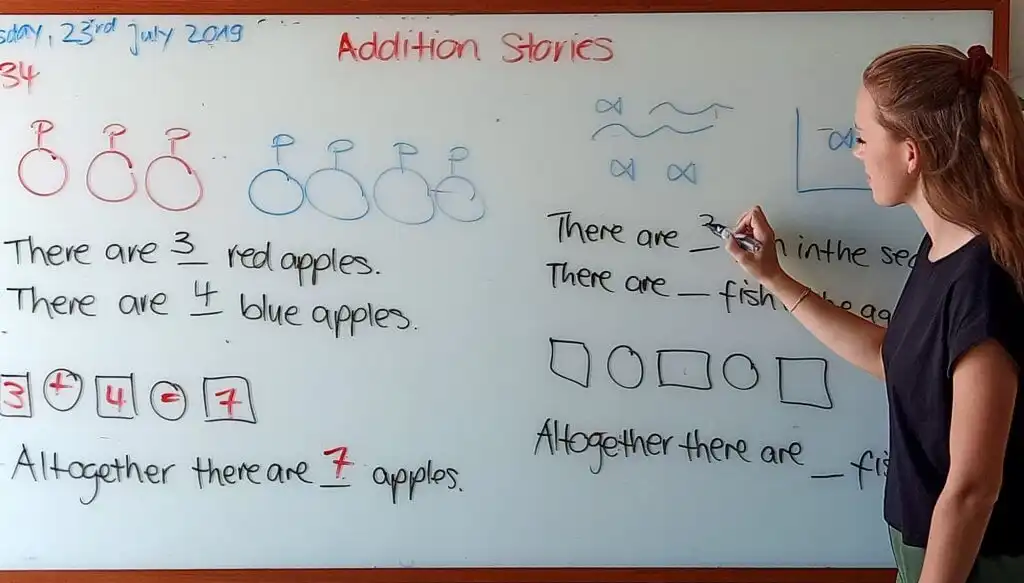 july 2019
23rd
34
Addition Stories
There are 3 red apples.
There are 4 blue apples.
3 + 4 = 7
Altogether there are 7 apples.
There are in the
There are _ fish
Altogether there are _